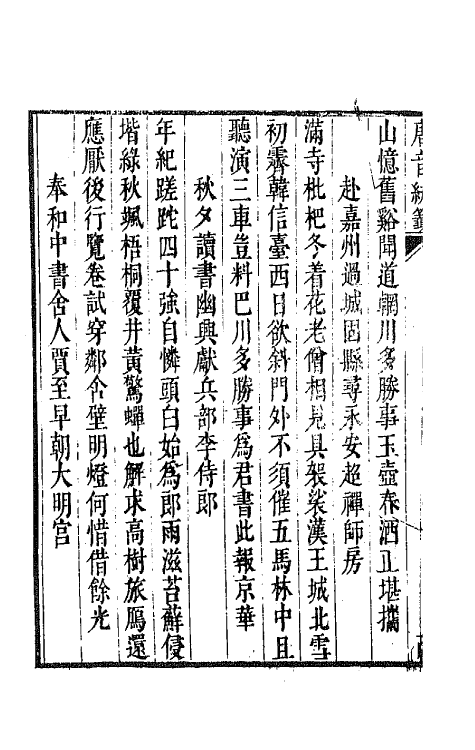 唐音統籖
山憶舊谿聞道輞川多勝事玉壺春酒正堪攜
赴嘉州過城固縣尋永安超禪師房
滿寺枇杷冬着花老僧相見具袈裟漢王城北雪
初霽韓信臺西日欲斜門外不須催五馬林中且
聽演三車豈料巴川多勝事爲君書此報京華
秋夕讀書幽興獻兵部李侍郎
年紀蹉跎四十強自憐頭白始爲郎雨滋苔蘚侵
堦綠秋颯梧桐覆井黃驚蟬也解求高樹旅鴈還
應厭後行覽卷試穿鄰舍壁明燈何惜借餘光
奉和中書舍人賈至早朝大明宮